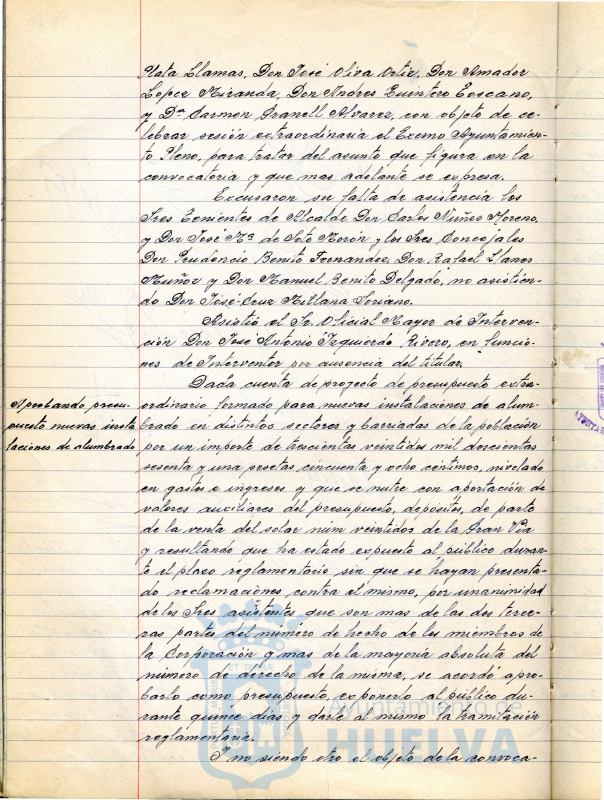 Plata Llamas, Don José Oliva Ortiz, Don Amador
López Miranda, Don Andres Quintero Toscano,
y Dª Carmen Granell Alvarez, con objeto de ce-
lebrar sesión extraordinaria el Excmo Ayuntamien-
to Pleno, para tratar del asunto que figura en la
convocatoria y que mas adelante se expresa.
Excusaron su falta de asistencia los
Sres Tenientes de Alcalde Don Carlos Nuñez Moreno,
y Don José Mª de Soto Morón y los Sres Concejales
Don Prudencio Benito Fernandez, Don Rafael Llanes
Muñoz y Don Manuel Benito Delgado, no asistien-
do Don José Cruz Soriano.
Asistió el Sr. Oficial Mayor de Interven-
ción Don José Antonio Izquierdo Rivero, en funcio-
nes de Interventor por ausencia del titular.
Dada cuenta de proyecto de presupuesto extra-
Aprobando presu-
puesto nuevas insta
laciones de alumbrado
ordinario formado para nuevas instalaciones de alum-
brado en distintos sectores y barriadas de la población
por un importe de trescientas veintidos mil doscientas
sesenta y una pesetas cincuenta y ocho céntimos, nivelado
en gastos e ingresos y que se nutre con aportación de
valores auxiliares del presupuesto, depósitos, de parte
de la venta del solar núm veintidos de la Gran Via
y resultando que ha estado expuesto al público duran-
te el plazo reglamentario sin que se hayan presenta-
do reclamaciones contra el mismo, por unanimidad
de los Sres asistentes que son mas de las dos terce-
ras partes del número de hecho de los miembros de
la Corporación y mas de la mayoria absoluta del
número de derecho de la misma, se acordó apro-
barlo como presupuesto, exponerlo al público du-
rante quince dias y darle al mismo la tramitación
reglamentaria.
Y no siendo otro el objeto de la convoca-
Ayuntamiento de
HUELVA